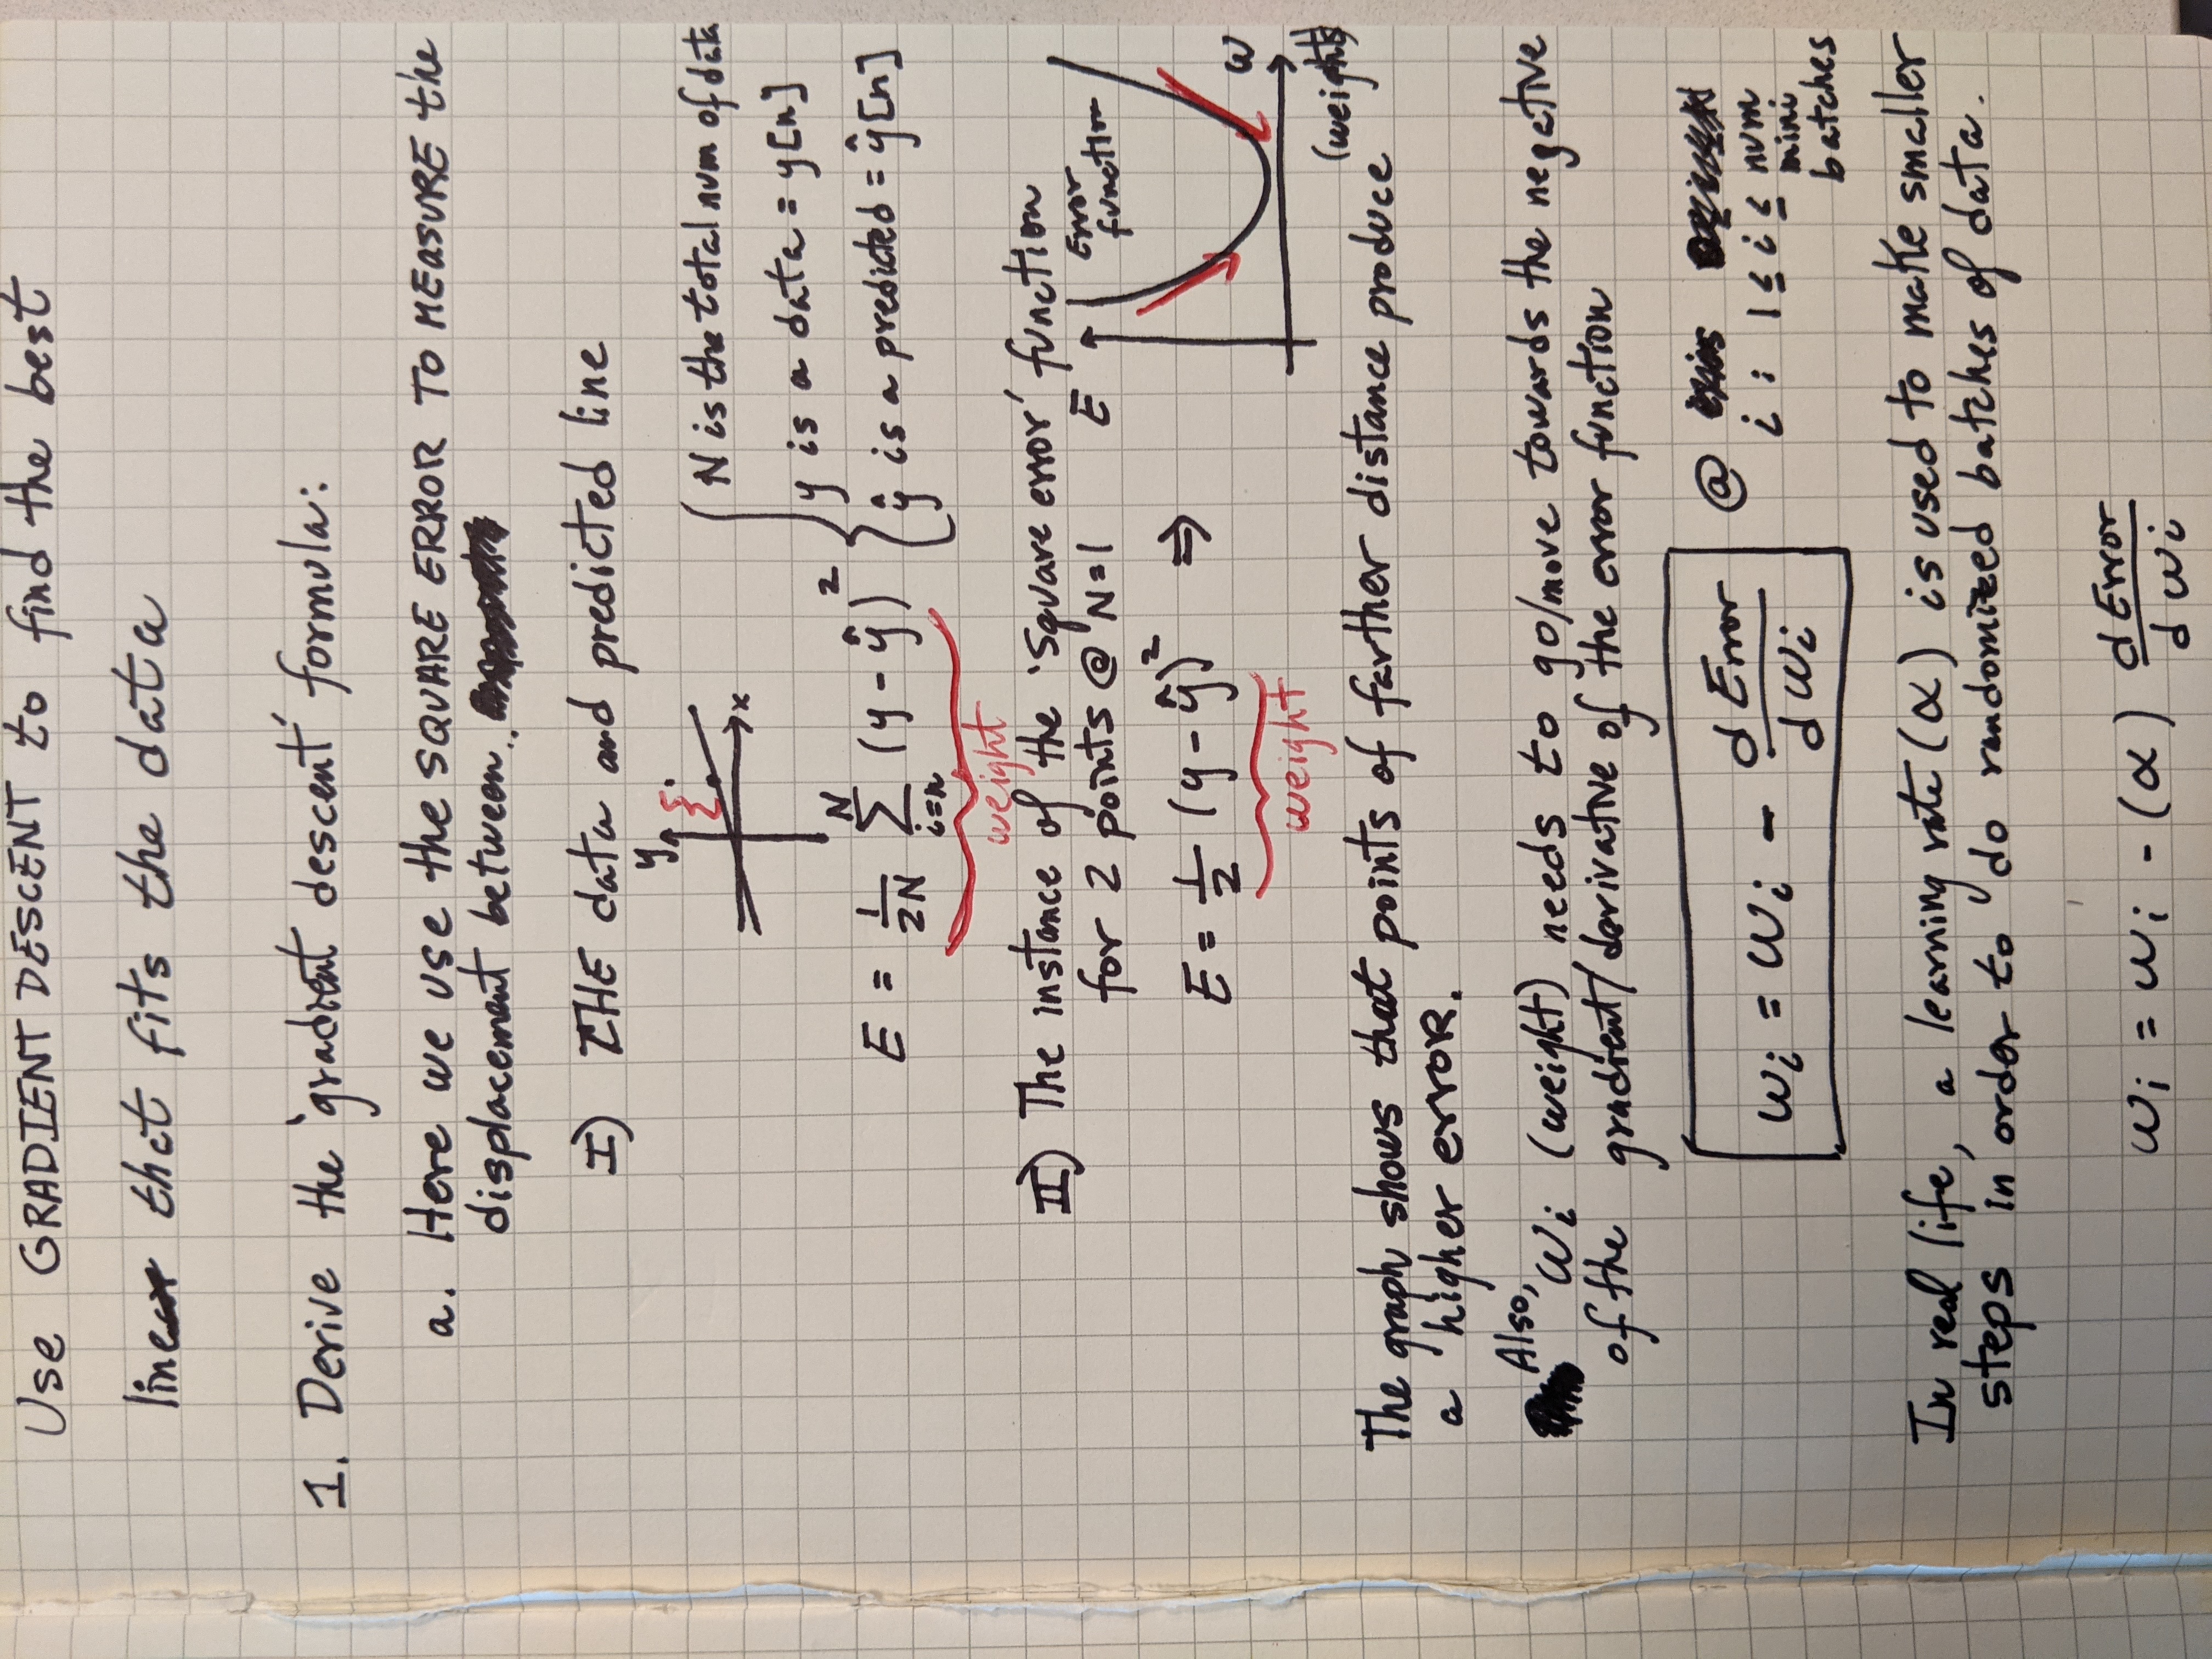 Use GRADIENT DESCENT to find the best
line that fits the data
1. Derive the 'gradient descent' formula:
a. Here we use the SQUARE ERROR TO MEASURE the
displacement between..
I) THE data and predicted line
y
x
N is the total num of data
y is a data = y[n]
ŷ is a predicted = ŷ[n]
E = 1/2N N∑i=n (y - ŷ)²
weight
II) The instance of the 'Square error' function
for 2 points @ N=1
E
Error
function
E = 1/2 (y - ŷ)² ⇒
weight
w
(weights)
The graph shows that points of farther distance produce
a higher error.
Also,
wi (weight) needs to go/move towards the negative
of the gradient/derivative of the error function
wi = wi - d Error/d wi
@
i : 1 ≤ i ≤ num
mini
batches
In real life, a learning rate (α) is used to make smaller
steps in order to do randomized batches of data.
wi = wi - (α) d Error/d wi